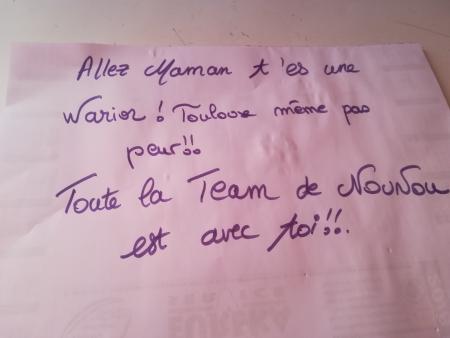 Allez Maman t'es une
Warior! Toulouse même pas
peur!!
Toute la Team de NouNou
est avec toi!!!